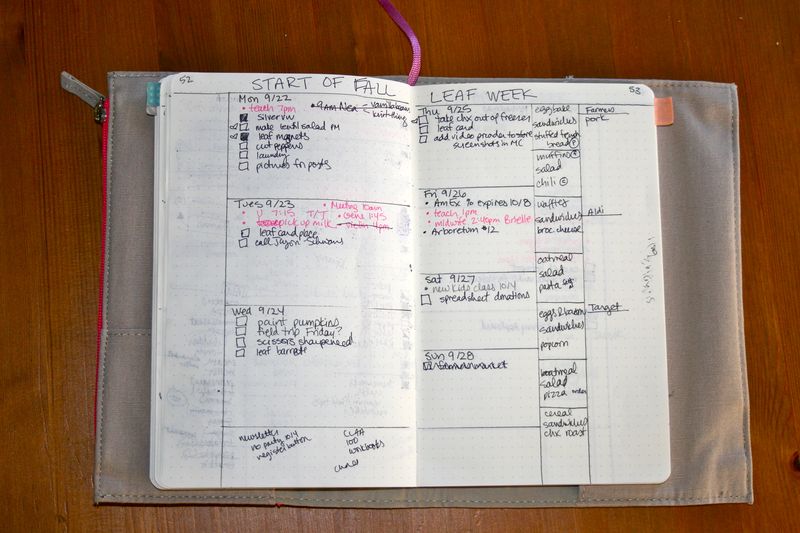 52
START OF FALL
Mon 9/22
• teach 7pm
silver vw
make lentil salad PM
leaf magnets
cut peppers
laundry
pictures fn posts
Tues 9/23
• Meeting 10am
• U 7:15 T/T
• Gene 1:45
• pick up milk
leaf card place
call Jayon Schwans
Wed 9/24
paint pumpkins
field trip Friday?
scissors sharpened
leaf barrette
newsletter
no party 10/4
register button
CLAA
100
workbooks
LEAF WEEK
53
Thu 9/25
take chx out of freezer
leaf card
add video provider to store
screenshots in MC
Fri 9/26
• Am Ex % expires 10/8
• teach 1pm
• midwife 2:40pm Brielle
• Arboretum $12
Sat 9/27
• new kids class 10/4
spreadsheet donations
Sun 9/28
egg bake
sandwiches
stuffed
bread
muffins
salad
chili
waffles
sandwiches
broc. cheese
oatmeal
salad
pasta
eggs & bacon
sandwiches
popcorn
oatmeal
salad
pizza
cereal
sandwiches
chx roast
Farmers
pork
Aldi
Target